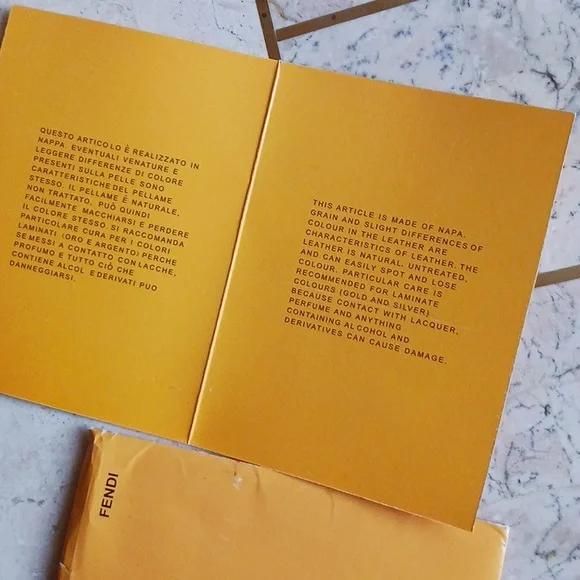 QUESTO ARTICOLO È REALIZZATO IN
NAPPA. EVENTUALI VENATURE E
LEGGERE DIFFERENZE DI COLORE
PRESENTI SULLA PELLE SONO
CARATTERISTICHE DEL PELLAME
STESSO. IL PELLAME È NATURALE,
NON TRATTATO, PUÒ QUINDI
FACILMENTE MACCHIARSI E PERDERE
IL COLORE STESSO. SI RACCOMANDA
PARTICOLARE CURA PER I COLORI
LAMINATI (ORO E ARGENTO) PERCHE
SE MESSI A CONTATTO CON LACCHE,
PROFUMO E TUTTO CIÒ CHE
CONTIENE ALCOL E DERIVATI PUO
DANNEGGIARSI.
THIS ARTICLE IS MADE OF NAPA.
GRAIN AND SLIGHT DIFFERENCES OF
COLOUR IN THE LEATHER ARE
CHARACTERISTICS OF LEATHER. THE
LEATHER IS NATURAL. UNTREATED,
AND CAN EASILY SPOT AND LOSE
COLOUR. PARTICULAR CARE IS
RECOMMENDED FOR LAMINATE
COLOURS (GOLD AND SILVER)
BECAUSE CONTACT WITH LACQUER,
PERFUME AND ANYTHING
CONTAINING ALCOHOL AND
DERIVATIVES CAN CAUSE DAMAGE.
FENDI